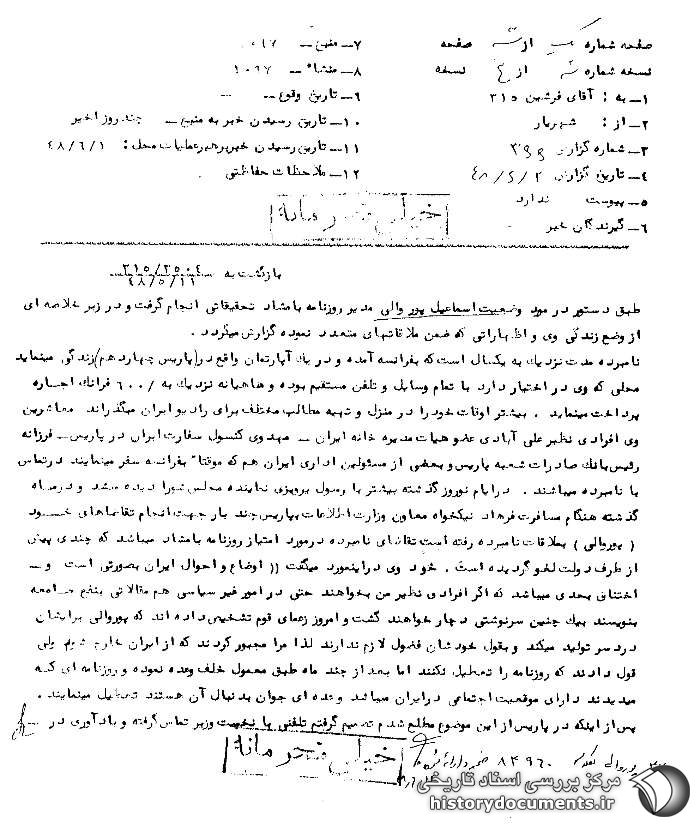 صفحه شماره یک از سه صفحه
نسخه شماره از ٤ نسخه
۱ـ به : آقای فرشین ۳۱۵
۲ـ از : شهریار
۳ـ شماره گزارش
٤ـ تاریخ گزارش ٤۸/۶/۲
۵ـ پیوست ندارد
۶ـ گیرندگان خبر ــ
۷ـ منبع ــ
۸ـ منشاء ــ ۱۰۹۷
۹ـ تاریخ وقوع ــ
۱۰ـ تاریخ رسیدن خبر به منبع ــ چند روز اخیر
۱۱ـ تاریخ رسیدن خبر برهبر عملیات محل : ٤۸/۶/۱
۱۲ـ ملاحظات حفاظتی
خیلی محرمانه
بازگشت به ۳۱۵/۲۵۰٤
٤۸/۵/۱۱
طبق دستور در مورد وضعیت اسماعیل پور والی مدیر روزنامه بامشاد تحقیقاتی انجام گرفت و در زیر خلاصه ای
از وضع زندگی وی و اظهاراتی که ضمن ملاقاتهای متعدد نموده گزارش میگردد .
نامبرده مدت نزدیک به یکسال است که بفرانسه آمده و در یک آپارتمان واقع در (پاریس چهاردهم) زندگی مینماید
محلی که وی در اختیار دارد با تمام وسایل و تلفن مستقیم بوده و ماهیانه نزدیک به ۶۰۰/ فرانک اجاره
پرداخت مینماید . بیشتر اوقات خود را در منزل و تهیه مطالب مختلف برای رادیو ایران میگذراند معاشرین
وی افرادی نظیر علی آبادی عضو هیات مدیره خانه ایران ــ مهدوی کنسول سفارت ایران در پاریس ــ فرزانه
رئیس بانک صادرات شعبه پاریس و بعضی از مسئولین اداری ایران هم که موقتا" بفرانسه سفر مینمایند در تماس
با نامبرده میباشند . در ایام نوروز گذشته بیشتر با رسول پرویزی نماینده مجلس شورا دیده میشد و در ماه
گذشته هنگام مسافرت فرهاد نیکخواه معاون وزارت اطلاعات بپاریس چند بار جهت انجام تقاضاهای خود
( پوروالی ) بملاقات نامبرده رفته است تقاضای نامبرده در مورد امتیاز روزنامه بامشاد میباشد که چندی پیش
از طرف دولت لغو گردیده است . خود وی در اینمورد میگفت (( اوضاع و احوال ایران بصورتی است و ــ
اختناق بحدی میباشد که اگر افرادی نظیر من بخواهند حتی در امور غیر سیاسی هم مقالاتی بنفع جامعه
بنویسند بیک چنین سرنوشتی دچار خواهند گشت و امروز زعمای قوم تشخیص داده اند که پوروالی برایشان
دردسر تولید میکند و بقول خودشان فضول لازم ندارند لذا مرا مجبور کردند که از ایران خارج شوم ولی
قول دادند که روزنامه را تعطیل نکنند اما بعد از چند ماه طبق معمول خلف وعده نموده و روزنامه ای که
میدیدند دارای موقعیت اجتماعی در ایران میباشد و عده ای جوان بدنبال آن هستند تعطیل مینمایند .
پس از اینکه در پاریس از این موضوع مطلع شدم تصمیم گرفتم تلفنی با نخست وزیر تماس گرفته و یادآوری در ــ
خیلی محرمانه
۸٤۹۶۰
مرکز بررسی اسناد تاریخی
historydocuments.ir